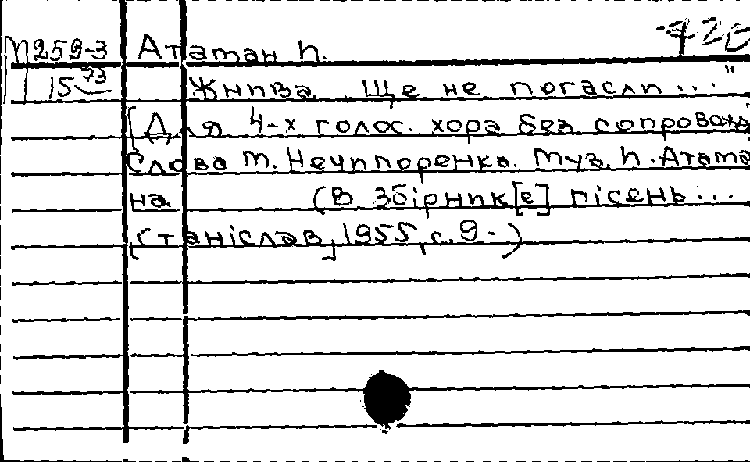 М259-3 Атаман П.
15 73 Жнива. Ще не погасли..."
[Для 4-х голос. хора без сопровожд
Слова М. Нечипоренка. Муз. П. Атама
на (В збірник[е] пісень...
Станіслав, 1955, с. 9-)